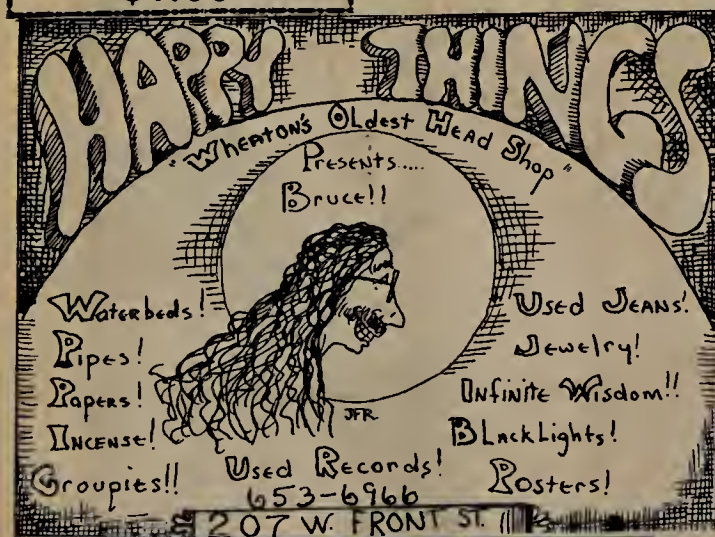 HAPPY THINGS
"Wheaton's Oldest Head Shop"
Presents.....
Bruce!!
Waterbeds!
Pipes!
Papers!
Incense!
Groupies!!
Used Jeans!
Jewelry!
Infinite Wisdom!!
BlackLights!
Posters!
JFR
Used Records!
653-6966
207 W. FRONT ST.